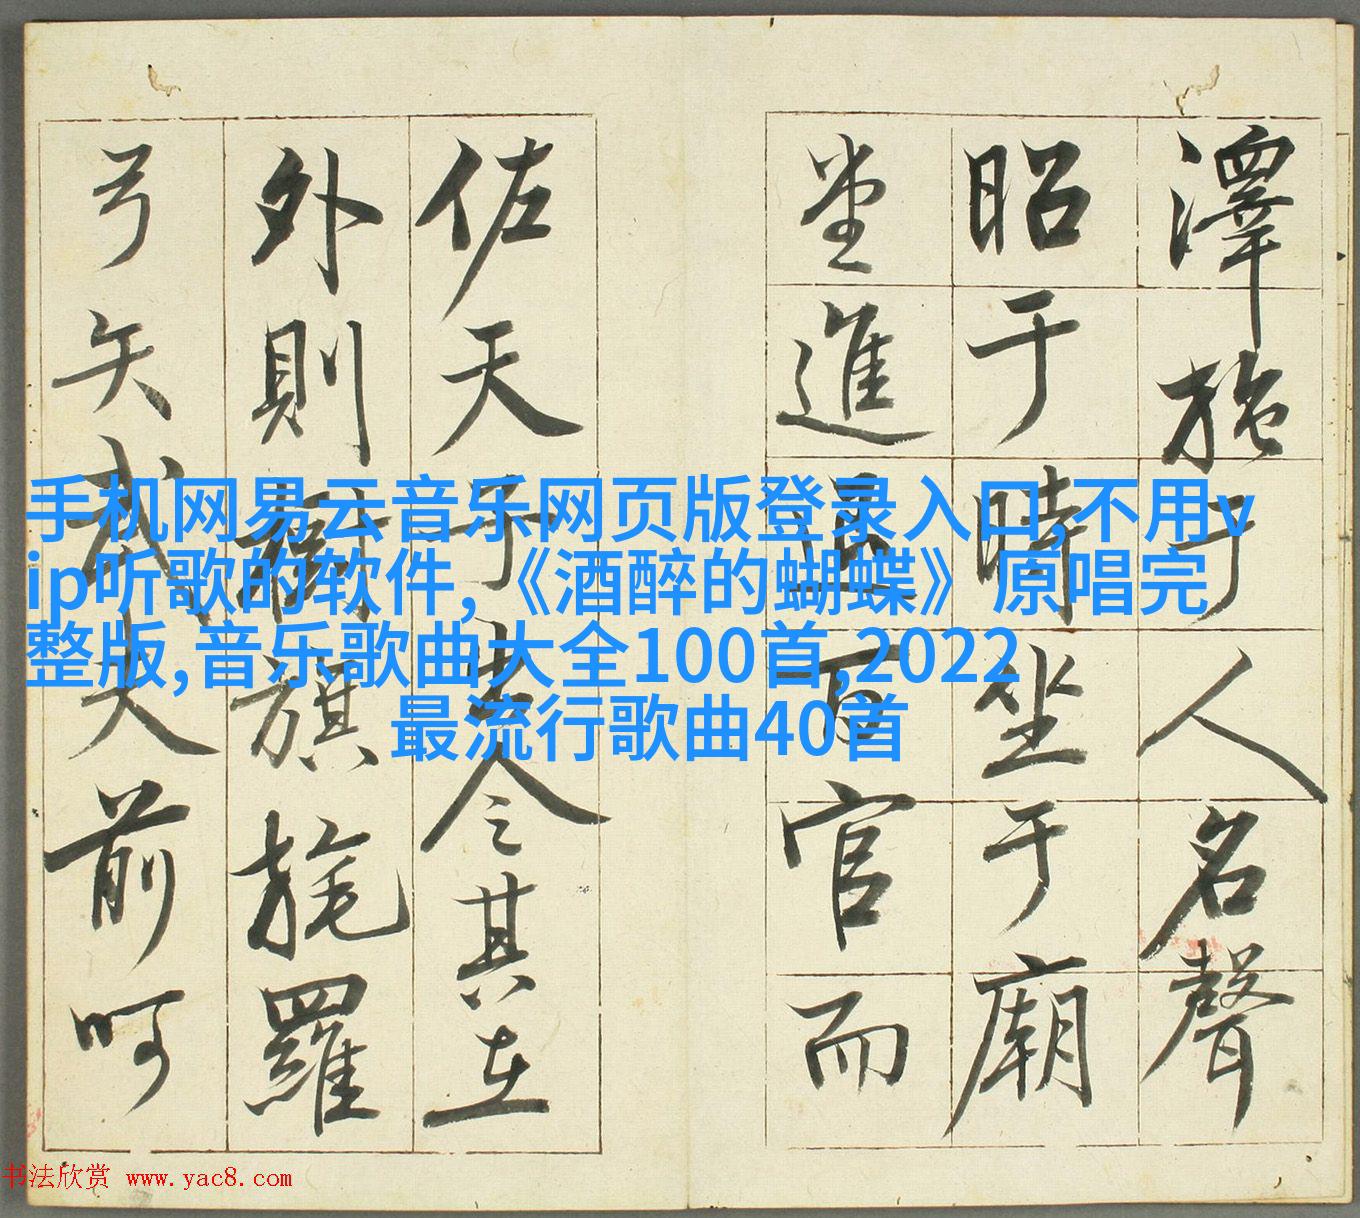 澤施于人名聲
昭于時坐于廟
堂進退百官而
佐天子出令其在
外則樹旗旄羅
弓矢武夫前呵
手机网易云音乐网页版登录入口,不用v
ip听歌的软件,《酒醉的蝴蝶》原唱完
整版,音乐歌曲大全100首,2022
最流行歌曲40首
书法欣赏 www.yac8.com